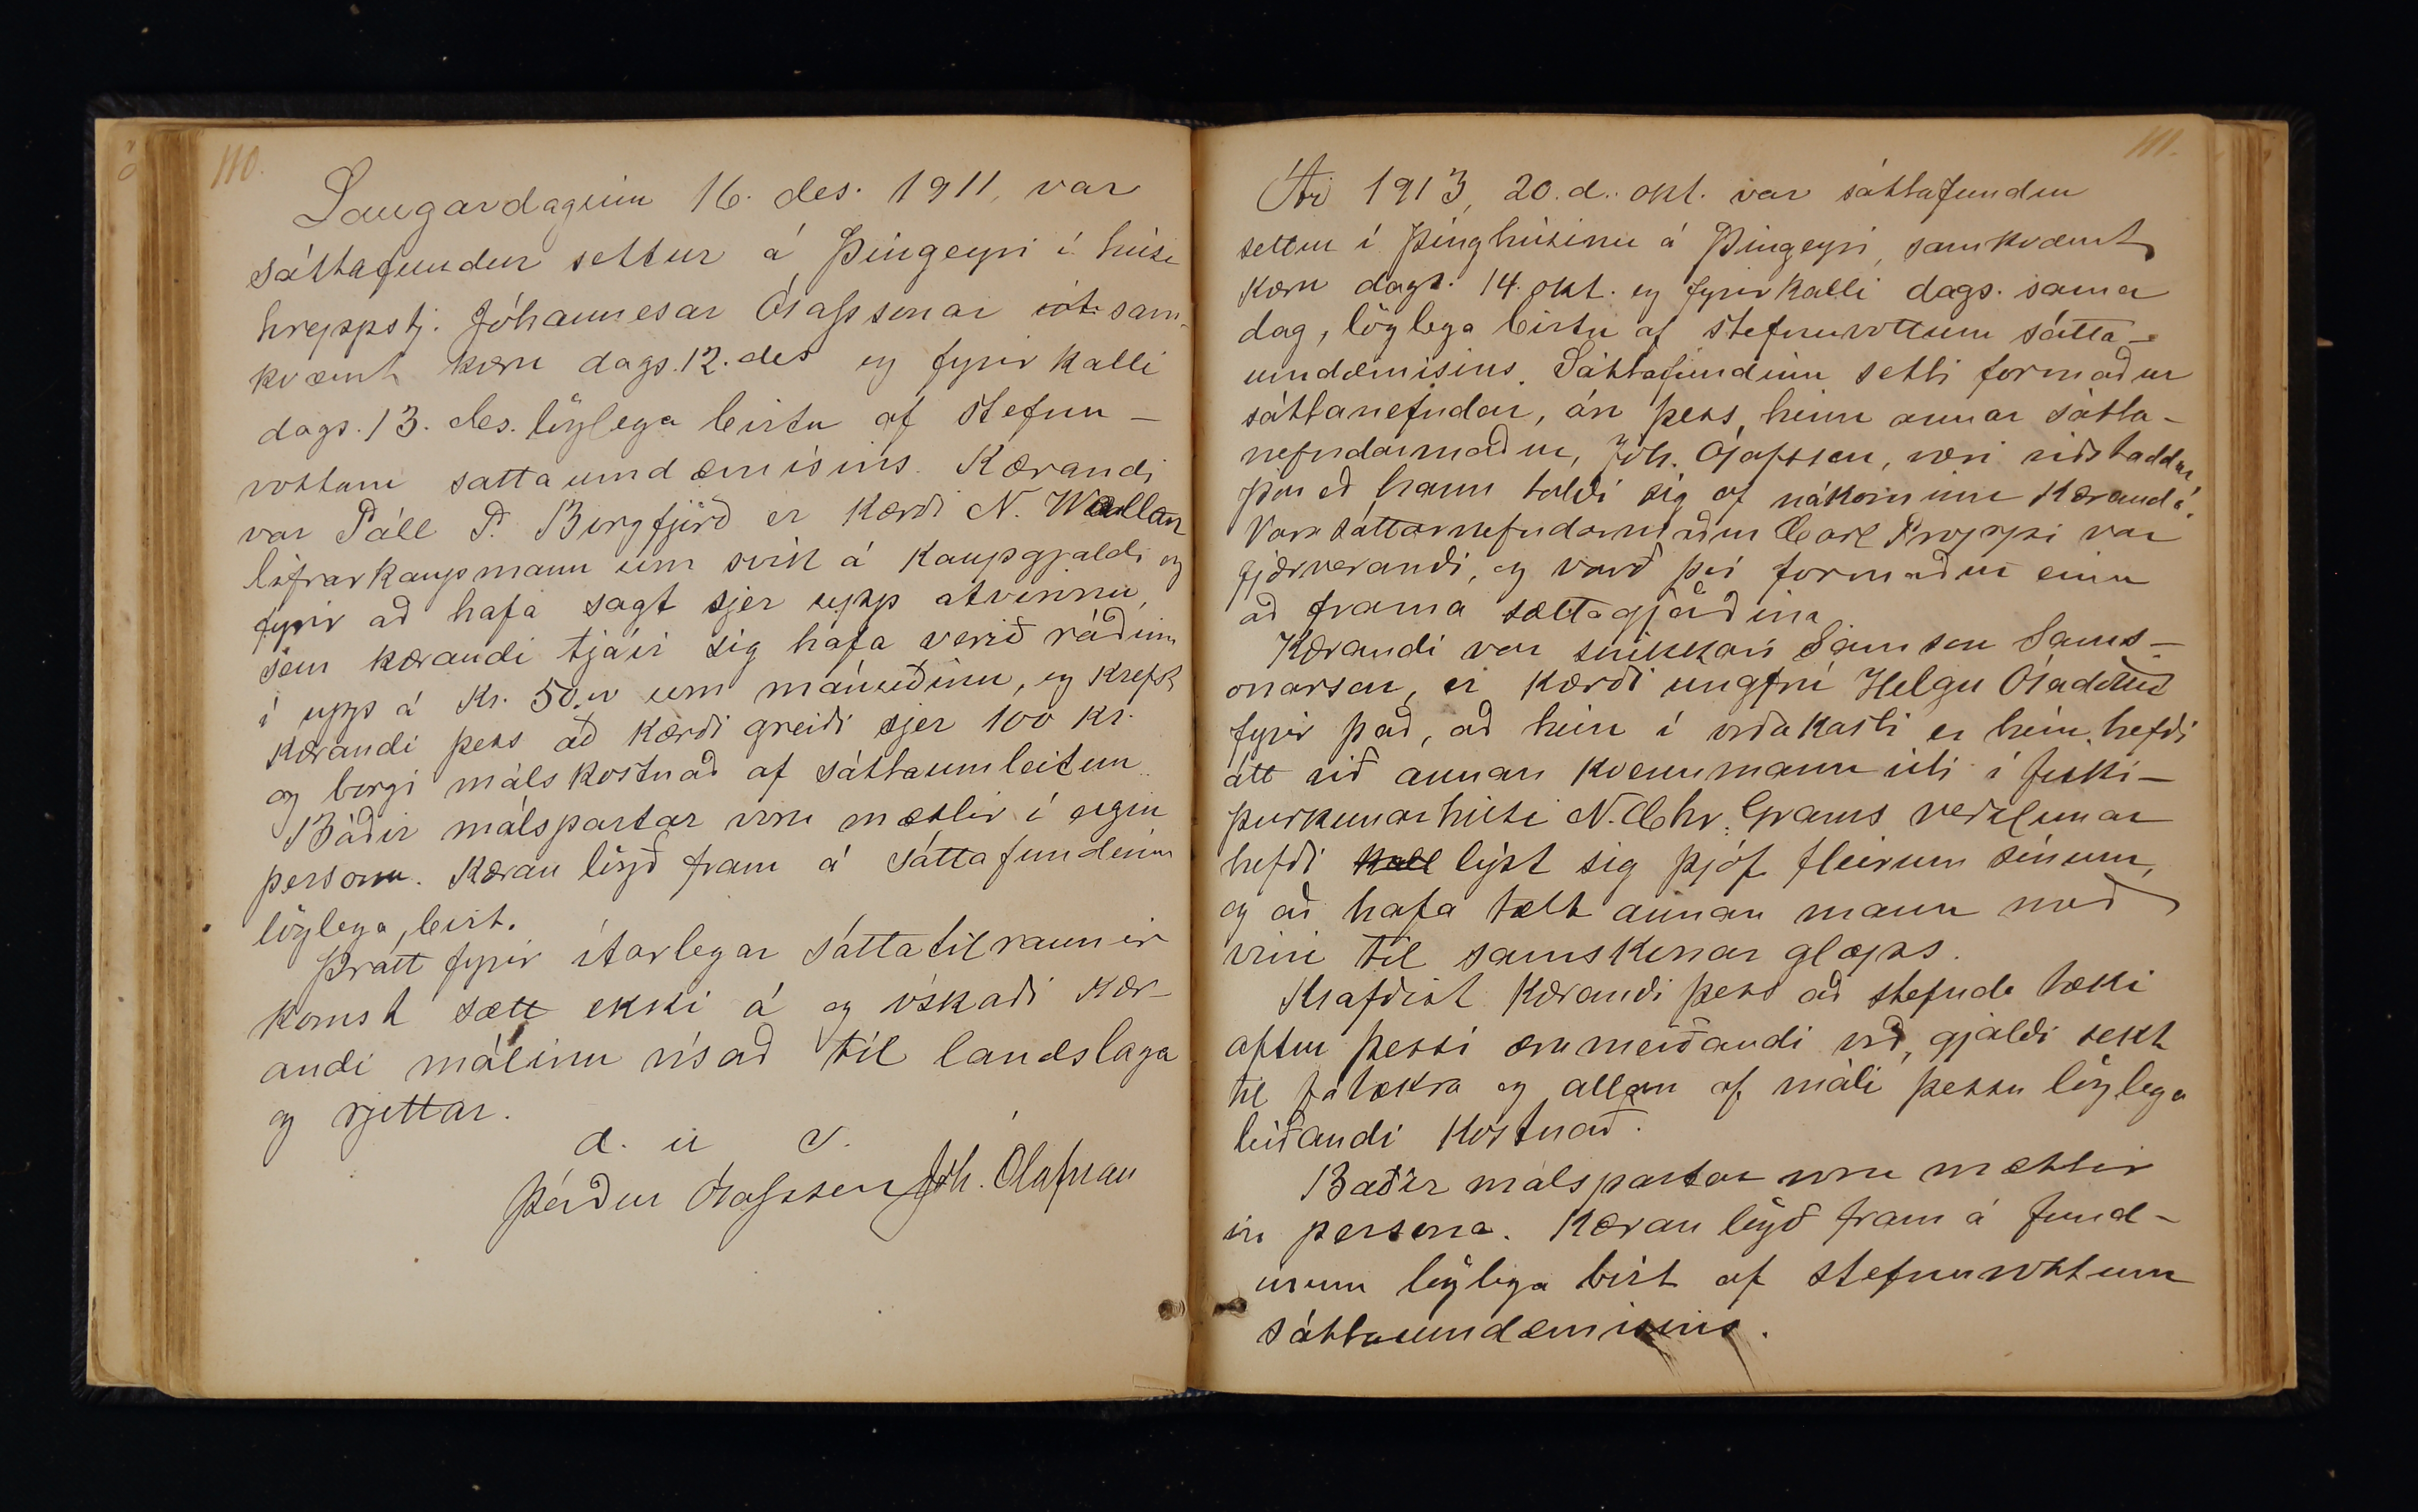 110.
Laugardaginn 16. des. 1911, var
sáttafundur settur á Þingeyri í húsi
hreppstj. Jóhannesar Ólafssonar sam-
kvæmt kæru dags. 12. des og fyrirkalli
dags. 13. des. löglega birtu af stefnu-
vottum sáttaumdæmisins. Kærandi
var Páll P. Borgfjörð er kærði N. Wallan
lifrarkaupmann um svik á kaupgjaldi og
fyrir að hafa sagt sjer upp atvinnu,
sem kærandi tjáir sig hafa verið ráðinn
í upp á kr. 50.00 um mánuðinn, og krefst
kærandi þess að kærði greiði sjer 100 kr.
og borgi málskostnað af sáttaumleitun.
Báðir málspartar voru mættir í eigin
persónu. Kæran lögð fram á sáttafundinum
löglega birt.
Þrátt fyrir ítarlegar sáttatilraunir
komst sætt ekki á og óskaði kær-
andi málinu vísað til landslaga
og rjettar.
d. u s.
Þórður Ólafsson Jóh. Ólafsson
111.
Ár 1913, 20. d. okt. var sáttafundur
settur í þinghúsinu á Þingeyri, samkvæmt
kæru dags. 14. okt. og fyrirkalli dags. sama
dag, löglega birtu af stefnuvottum sátta-
umdæmisins. Sáttafundinn setti formaður
sáttanefndar, án þess hinn annar sátta-
nefndarmaður, Jóh. Ólafsson, væri viðstaddur,
þar eð hann taldi sig of nákominn kæranda.
Vara sáttarnefndarmaður Carl Proppé var
fjærverandi, og varð því formaður einn
að frama sættagjörðina
Kærandi var snikkari Samson Sams-
onarson, er kærði ungfrú Helgu
fyrir það, að hún í orðakasti er hún hefði
átt við annan kvennmann úti í fiski-
þurkunarhúsi N. Chr. Grams verzlunar
hefði kall lýst sig þjóf fleirum sinnum,
og að hafa tælt annan mann með
víni til samskonar glæps.
Krafðist kærandi þess að stefnda tæki
aftur þessi ærumeiðandi orð, gjaldi sekt
til fátækra og allan af máli þessu löglega
leiðandi kostnað.
Báðir málspartar voru mættir
in persona. Kæran lögð fram á fund-
inum löglega birt af stefnuvottum
sáttaumdæmisins.